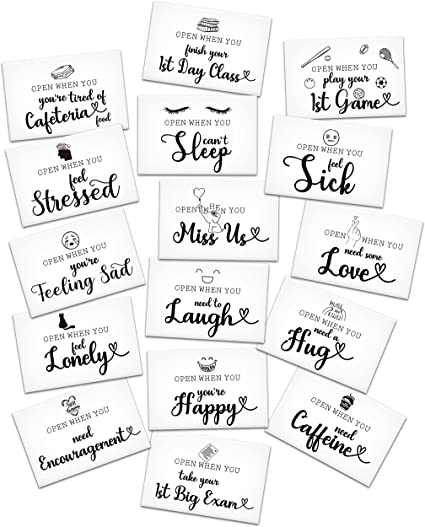 OPEN WHEN YOU
you're tired of
Cafeteria food
OPEN WHEN YOU
finish your
1st Day Class
OPEN WHEN YOU
play your
1st Game
OPEN WHEN YOU
feel
Stressed
OPEN WHEN YOU
can't
Sleep
OPEN WHEN YOU
feel
Sick
OPEN WHEN YOU
you're
Feeling Sad
OPEN WHEN YOU
Miss Us
OPEN WHEN YOU
need some
Love
OPEN WHEN YOU
feel
Lonely
OPEN WHEN YOU
need to
Laugh
OPEN WHEN YOU
need a
Hug
OPEN WHEN YOU
need
Encouragement
OPEN WHEN YOU
you're
Happy
OPEN WHEN YOU
need
Caffeine
OPEN WHEN YOU
take your
1st Big Exam